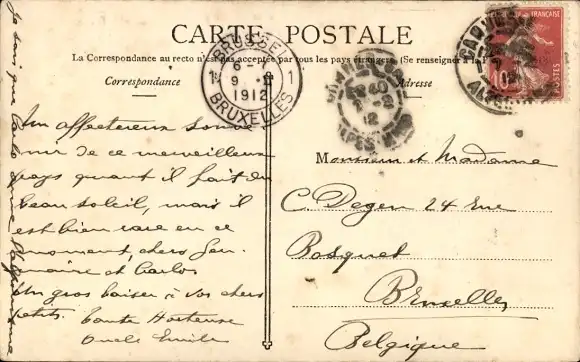 CARTE POSTALE
La Correspondance au recto n'est pas acceptée par tous les pays étrangers. (Se renseigner à la
Correspondance
Adresse
BRUSSEL
6 -
9 - II
1 1
1912
BRUXELLES
CANNES
40
12
FRANÇAISE
10
POSTES
Un affectueux souve
nir de ce merveilleux
pays quant il fait du
beau soleil, mais il
est bien rare en ce
moment, chers Ger-
maine et Carlos
Un gros baiser à vos chers
petits. Tante Hortense
Oncle Emile
Je sais que Carlos
Monsieur et Madame
C Degen 24 Rue
Bosquet
Bruxelles
Belgique